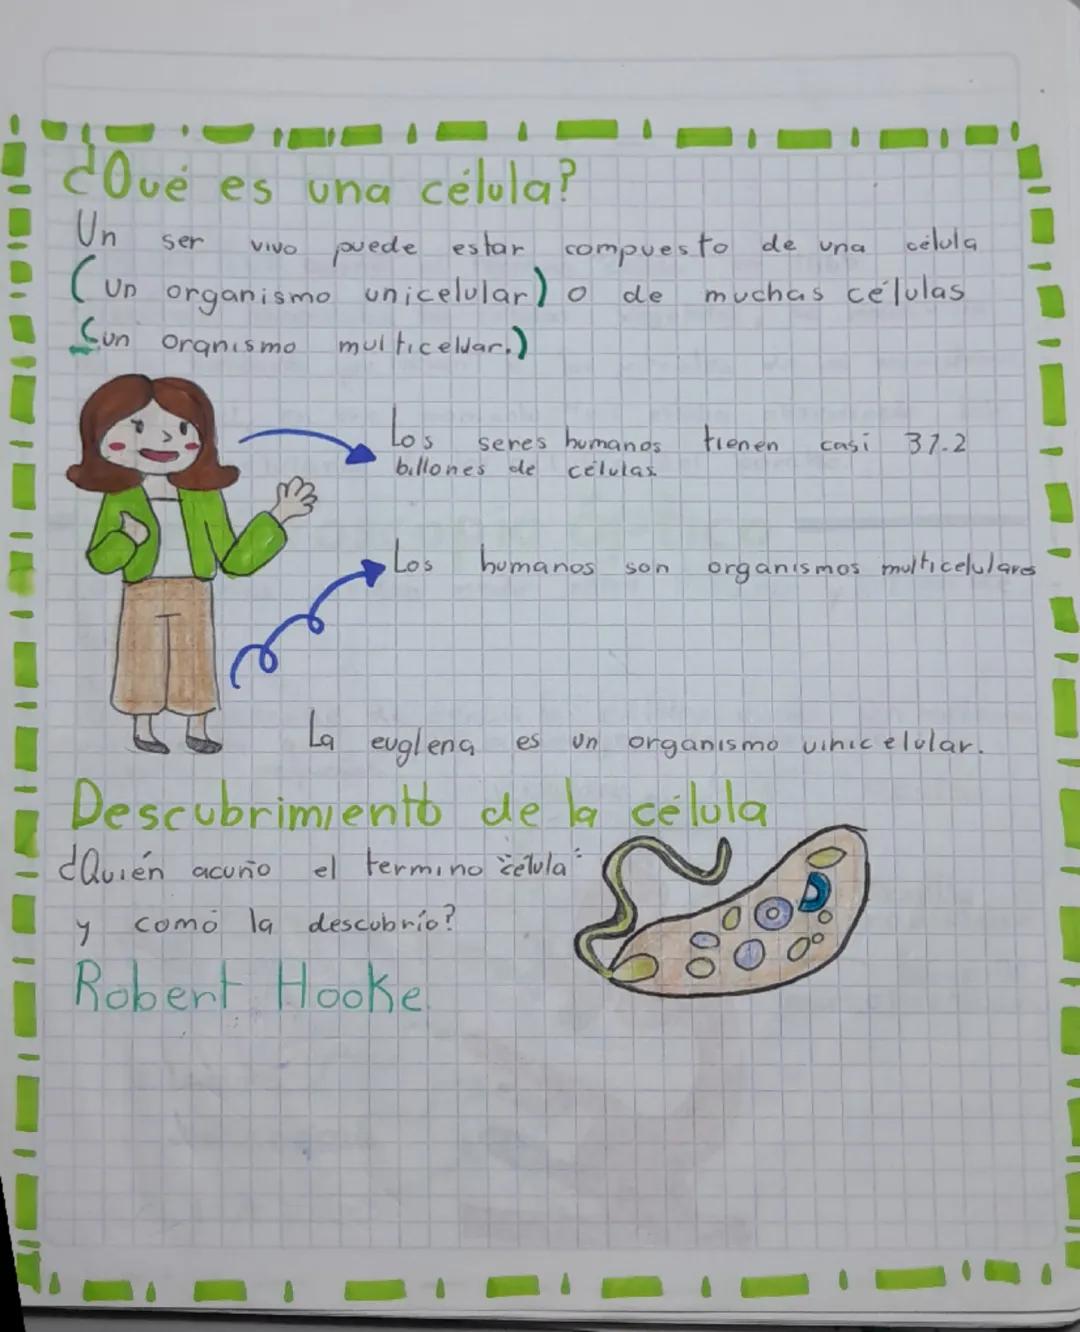 ¿Qué es una célula?
Un ser vivo puede estar compuesto de una célula
(un organismo unicelular) o de muchas células
(un oranismo multicelular.)
Los seres humanos tienen casi 37.2
billones de células.
Los humanos son organismos multicelulares
La euglena es un organismo unicelular.
Descubrimiento de la célula
¿Quién acuño el termino "célula"
y como la descubrio?
Robert Hooke.